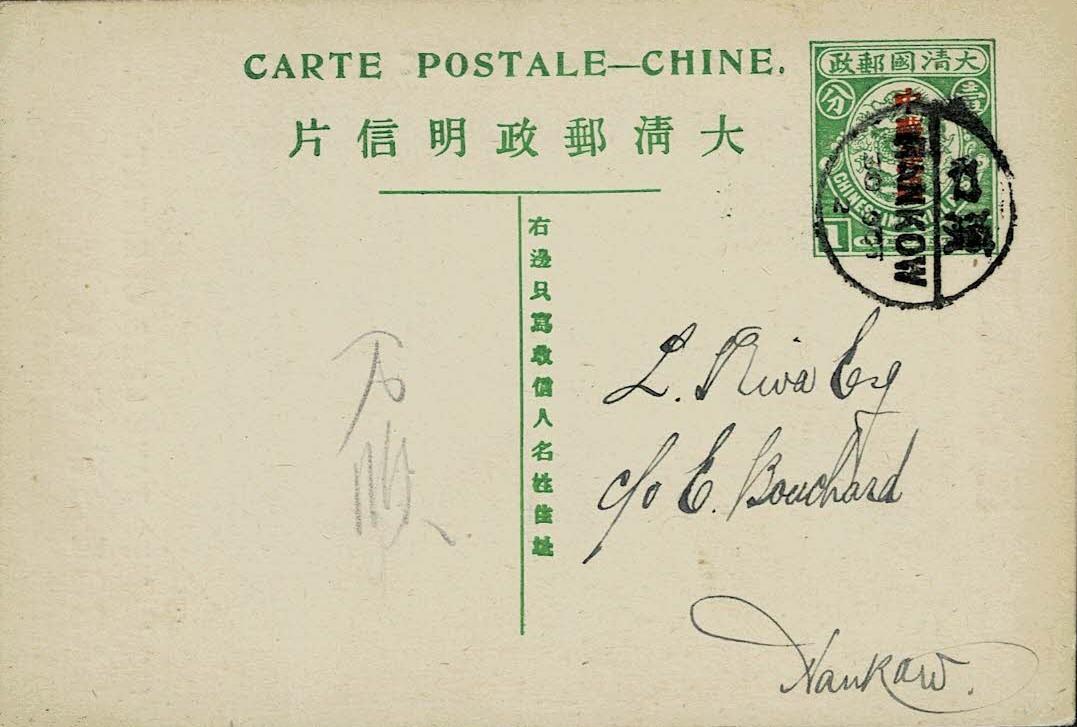 CARTE POSTALE—CHINE.
大清郵政明信片
大清國郵政
壹分
CHINESE IMPERIAL
1
HANKOW
口漢
右邊只寫收信人名姓住址
L. Riva Esq
c/o E. Bouchard
Hankow.